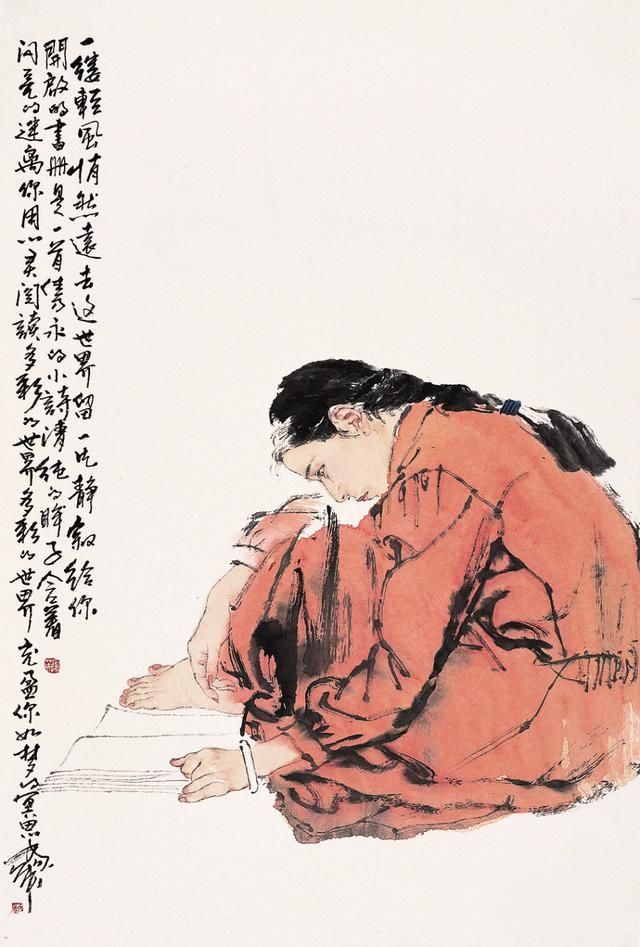 一缕輕風悄然遠去这世界留一片靜寂给你
開啟的書册是一首雋永的小詩清純的眸子含着
闪亮的迷离你用心灵阅讀多彩的世界多彩的世界充盈你如梦的冥思